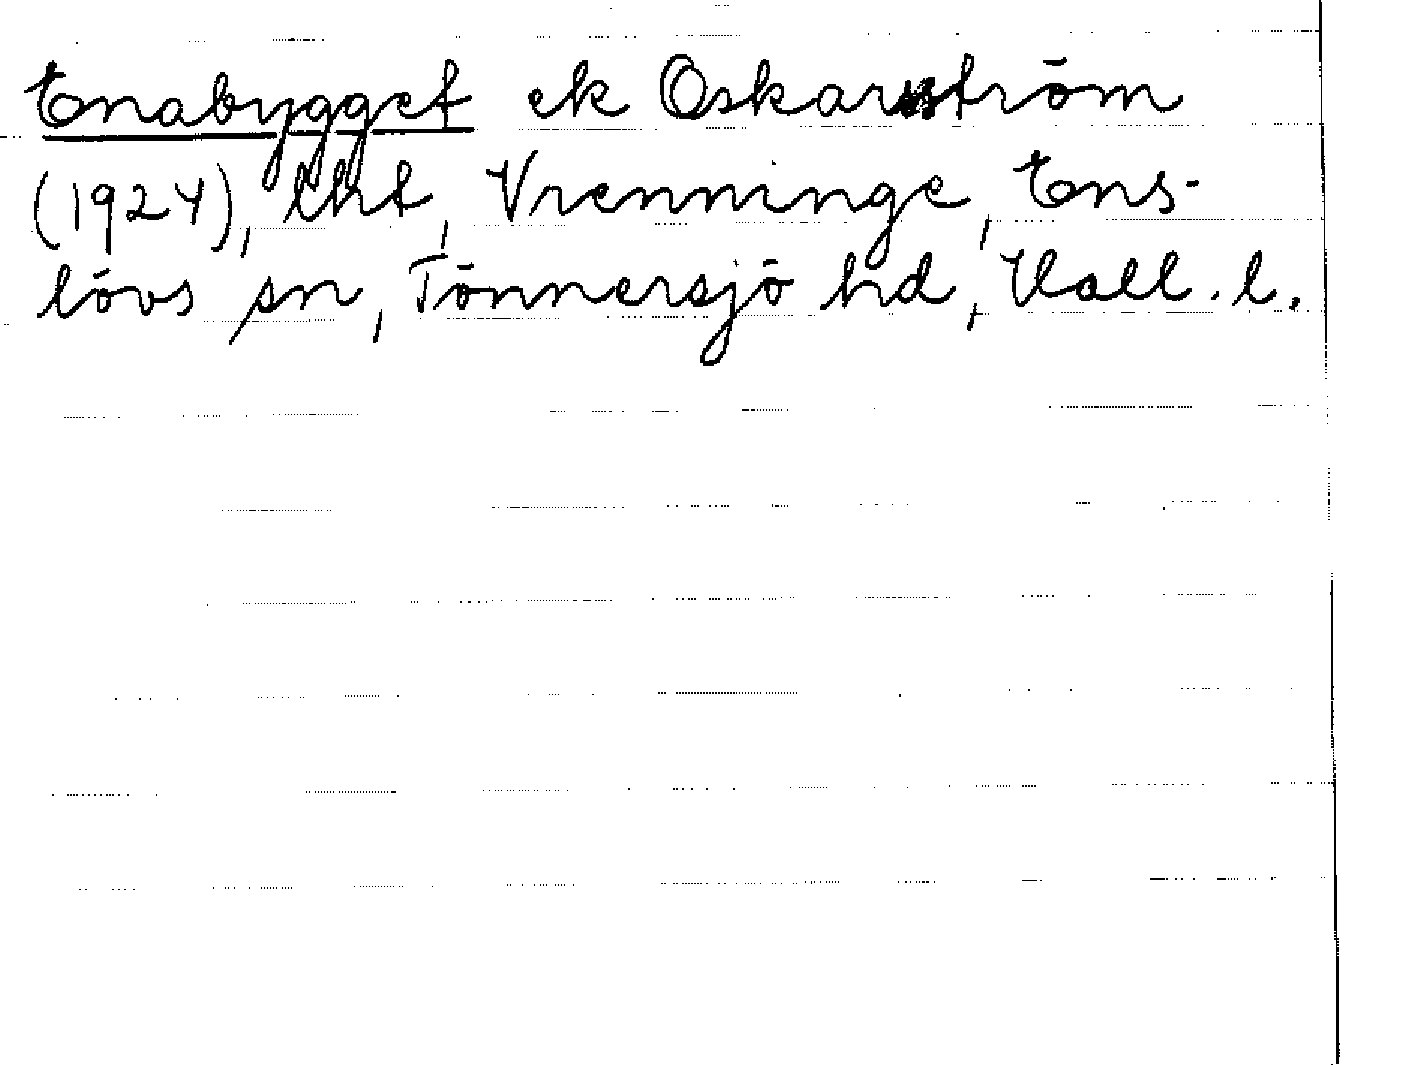 Enabygget ek Oskarström
(1924), lht, Vrenninge, Ens-
lövs sn, Tönnersjö hd, Hall. l.